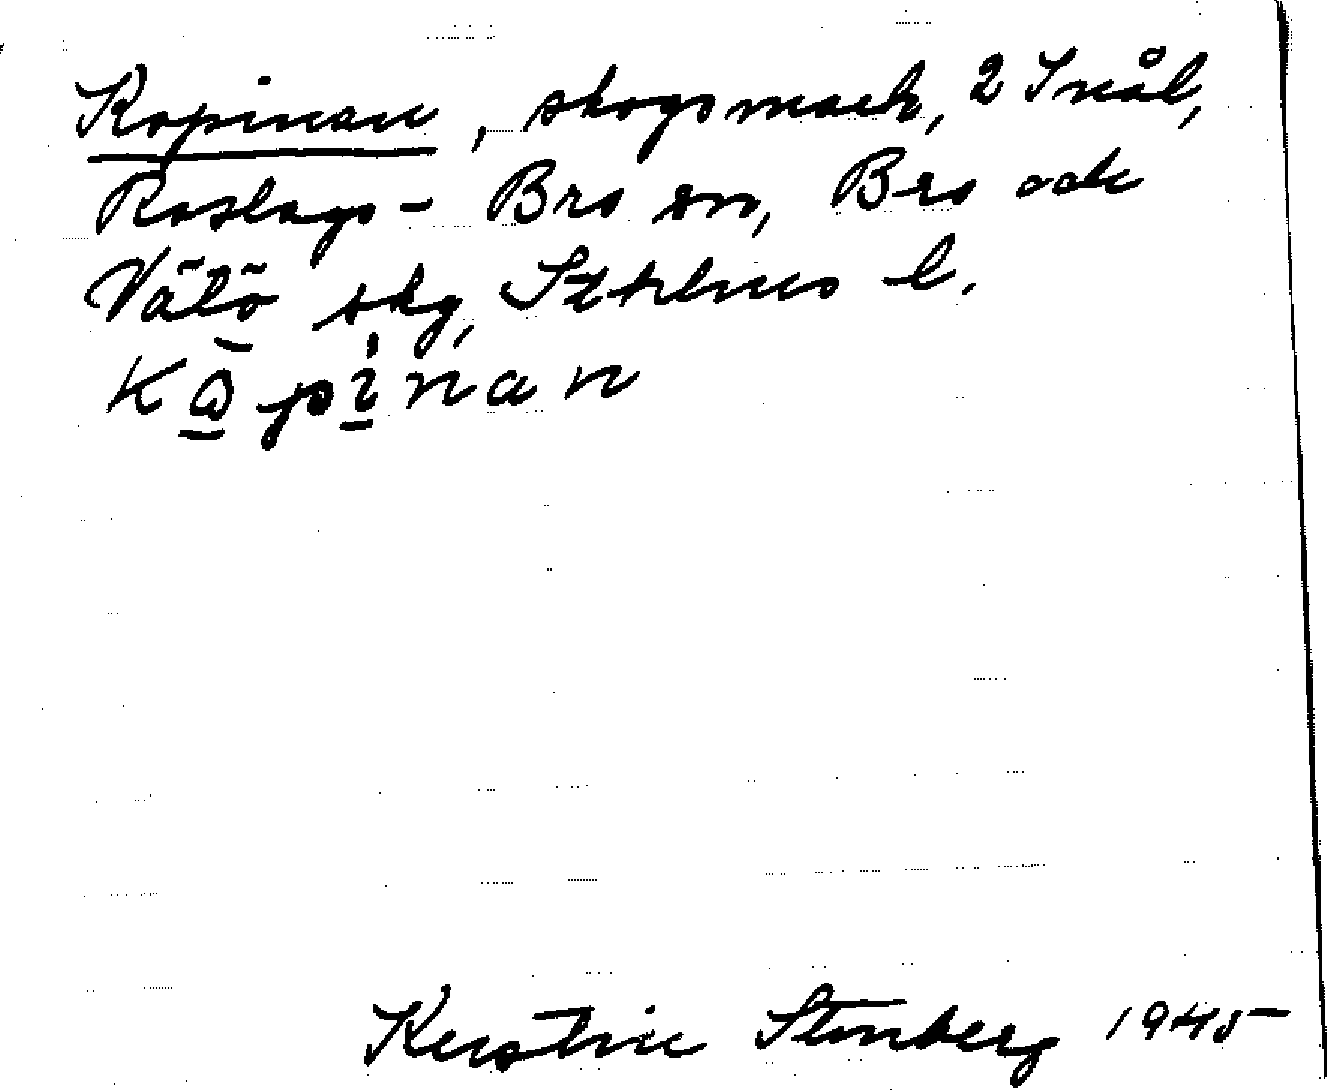 Kopinan, skogsmark, 2 Snål,
Roslags-Bro sn, Bro och
Vätö skg, Sthlms l.
Kåpinan
Kerstin Stenberg 1945